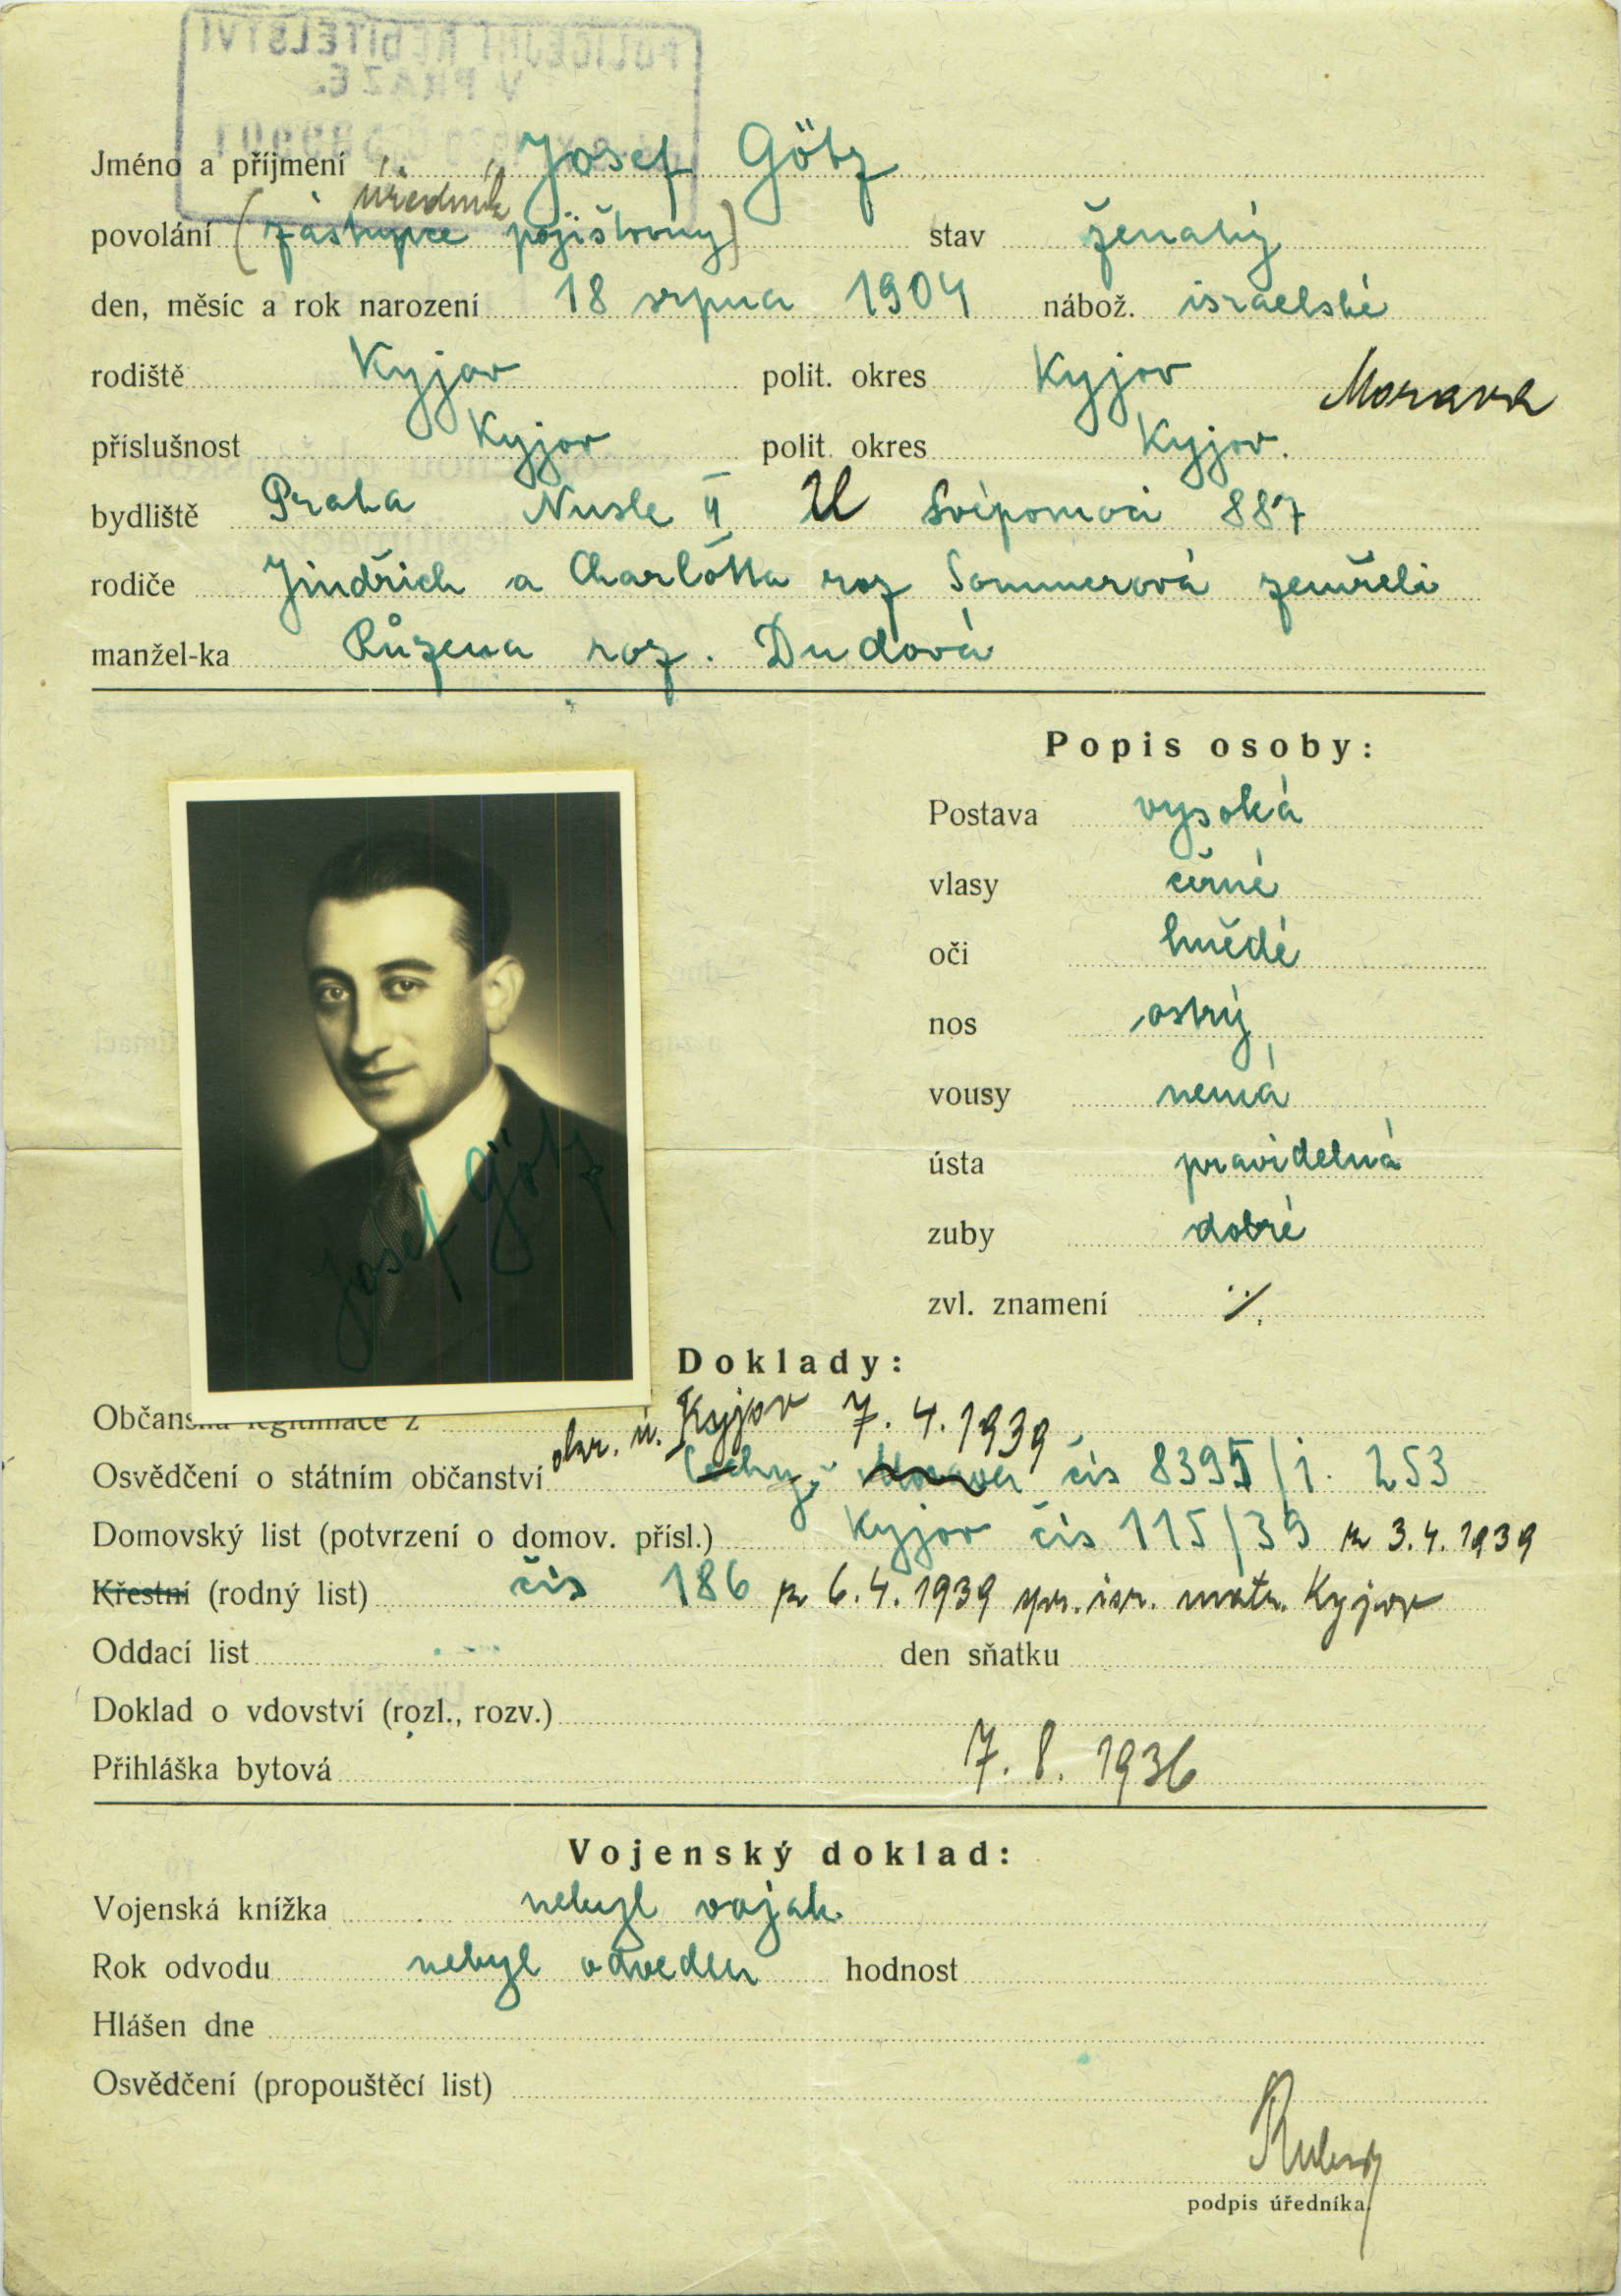 POLICEJNÍ ŘEDITELSTVÍ
V PRAZE.
Jméno a příjmení Josef Götz
úředník
povolání (zástupce pojišťovny) stav ženatý
den, měsíc a rok narození 18 srpna 1904 nábož. israelské
rodiště Kyjov polit. okres Kyjov Morava
příslušnost Kyjov polit. okres Kyjov.
bydliště Praha Nusle II U Svépomoci 887
rodiče Jindřich a Charlotta roz Sommerová zemřeli
manžel-ka Růžena roz. Dudová
Popis osoby:
Postava vysoká
vlasy černé
oči hnědé
nos ostrý
vousy nemá
ústa pravidelná
zuby dobré
zvl. znamení ·/.
Josef Götz
Doklady:
Občanská legitimace z
okr. ú. Kyjov 7. 4. 1939
Osvědčení o státním občanství Čechy Morava čís 8395/i. 253
Domovský list (potvrzení o domov. přísl.) Kyjov čís 115/39 z 3.4.1939
Křestní (rodný list) čís 186 z 6.4.1939 isr. matr. Kyjov
Oddací list den sňatku
Doklad o vdovství (rozl., rozv.)
Přihláška bytová 7. 8. 1936
Vojenský doklad:
Vojenská knížka nebyl voják
Rok odvodu nebyl odveden hodnost
Hlášen dne
Osvědčení (propouštěcí list)
podpis úředníka